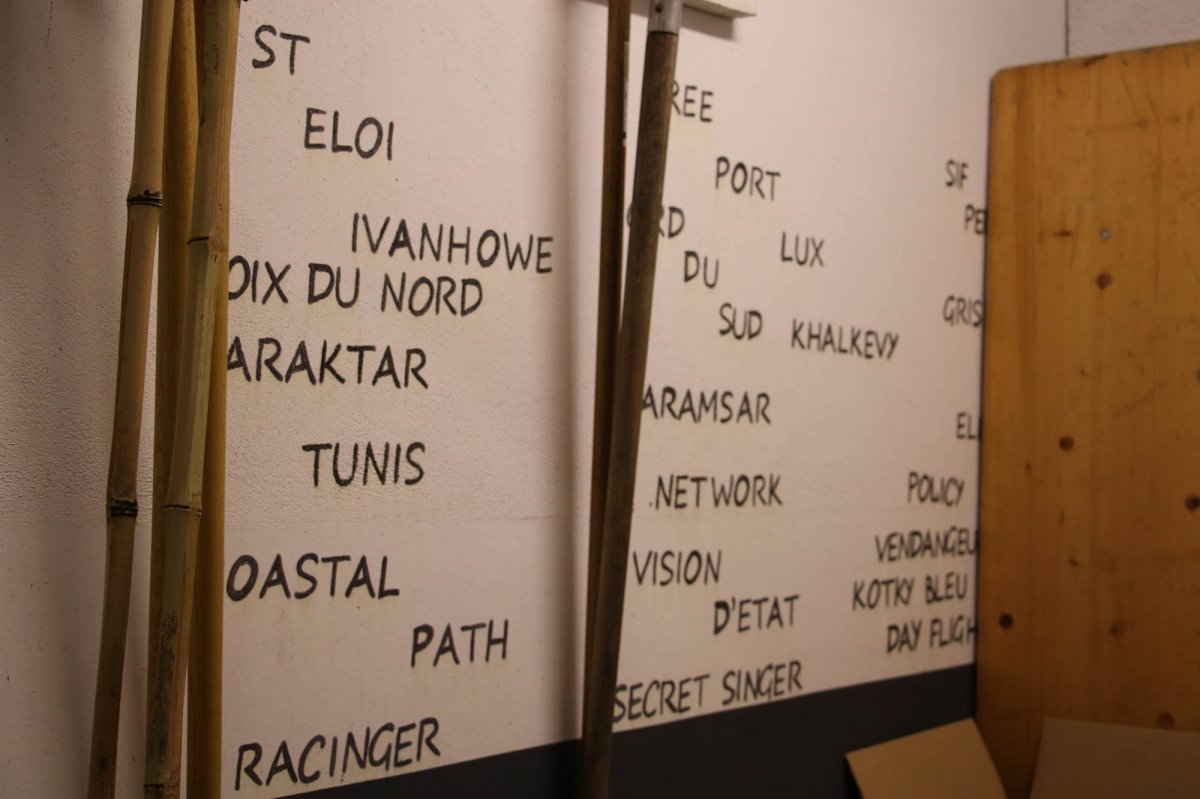 ST
ELOI
IVANHOWE
OIX DU NORD
ARAKTAR
TUNIS
OASTAL
PATH
RACINGER
REE
PORT
RD
LUX
DU
SUD
KHALKEVY
ARAMSAR
NETWORK
VISION
D'ETAT
SECRET SINGER
SIF
PE
GRIS
EL
POLICY
VENDANGEU
KOTKY BLEU
DAY FLIGH